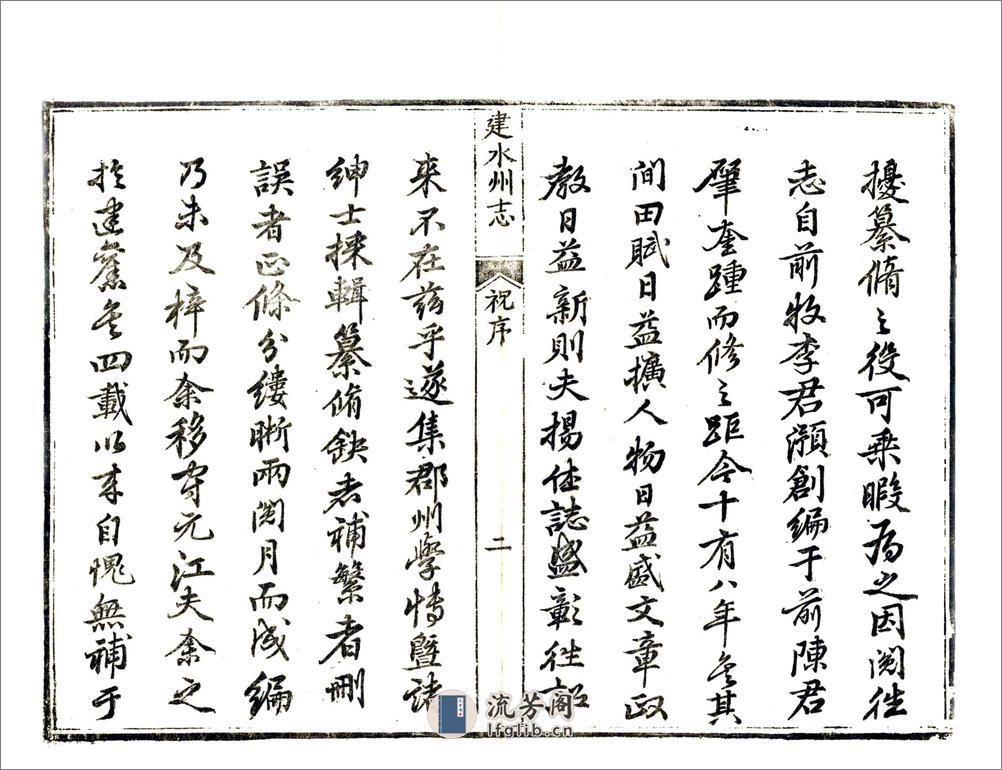 擾纂脩之役可乘暇為之因閱往
志自前牧李君灝創編于前陳君
肇奎踵而修之距今十有八年矣其
間田賦日益擴人物日益盛文章政
教日益新則夫揚往誌盛彰往詔
建水州志
祝序
二
來不在茲乎遂集郡州學博暨諸
紳士採輯纂脩缺者補繁者刪
誤者正條分縷晰兩閱月而成編
乃未及梓而余移守元江夫余之
於建舊矣四載以來自愧無補于
流芳阁
lfglib.cn